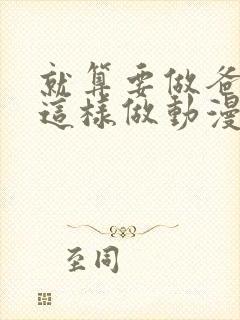 就算要做爸
這樣做動漫
至同